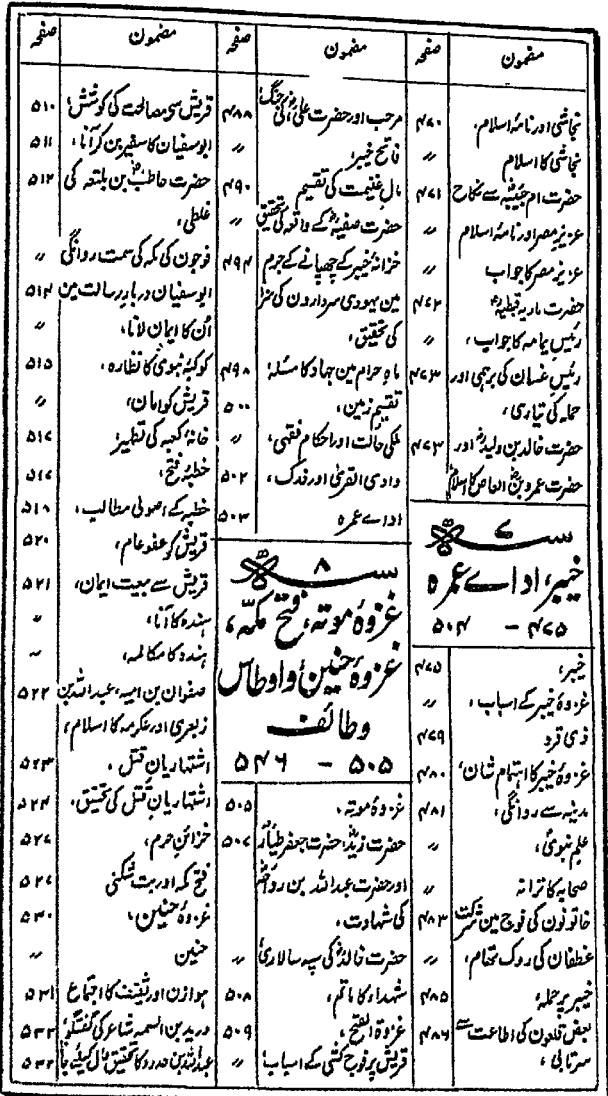 مضمون صفحہ
نجاشی اور نامۂ اسلام، ۴۷۰
نجاشی کا اسلام ״
حضرت ام حبیبہؓ سے نکاح ۴۷۱
عزیز مصر اور نامۂ اسلام ״
عزیز مصر کا جواب ״
حضرت ماریہ قبطیہؓ ۴۷۲
رئیس یمامہ کا جواب، ״
رئیس غسان کی برہمی اور ۴۷۳
حملہ کی تیاری،
حضرت خالد بن ولیدؓ اور ۴۷۳
حضرت عمرو بن العاصؓ کا اسلام
سنہ ۷ھ
خیبر، اداے عمرہ
۴۷۵ – ۵۰۴
خیبر، ۴۷۵
غزوۂ خیبر کے اسباب، ״
ذی قرد ۴۷۹
غزوۂ خیبر کا اہتمام شان، ۴۸۰
مدینہ سے روانگی، ۴۸۱
علم نبوی، ״
صحابہ کا ترانہ ״
خاتونون کی فوج مین شرکت ۴۸۳
غطفان کی روک تھام، ״
خیبر پر حملہ، ۴۸۵
بعض قلعون کی اطاعت سے ۴۸۶
سرتابی،
مضمون صفحہ
مرحب اور حضرت علیؓ کی جنگ؛ ۴۸۸
فاتح خیبر، ״
مال غنیمت کی تقسیم ۴۹۰
حضرت صفیہؓ کے واقعہ کی تحقیق ״
خزانۂ خیبر کے چھپانے کے جرم ۴۹۴
مین یہودی سردارون کی سزا
کی تحقیق،
ماہ حرام مین جہاد کا مسئلہ ۴۹۸
تقسیم زمین، ۵۰۰
ملکی حالت اور احکام فقہی، ״
وادی القریٰ اور فدک، ۵۰۲
اداے عمرہ ۵۰۳
سنہ ۸ھ
غزوۂ موتہ، فتح مکہ،
غزوۂ حنین و اوطاس
وطائف
۵۰۵ – ۵۴۶
غزوۂ موتہ، ۵۰۵
حضرت زیدؓ، حضرت جعفر طیارؓ ۵۰۶
اور حضرت عبداللہ بن رواحہؓ
کی شہادت،
حضرت خالدؓ کی سپہ سالاری ״
شہداء کا ماتم، ۵۰۸
غزوۃ الفتح، ۵۰۹
قریش پر فوج کشی کے اسباب؛ ״
مضمون صفحہ
قریش سے مصالحت کی کوشش؛ ۵۱۰
ابوسفیان کا سفیر بن کر آنا، ۵۱۱
حضرت حاطبؓ بن بلتعہ کی ۵۱۲
غلطی،
فوجون کی مکہ کی سمت روانگی ״
ابوسفیان دربار رسالت مین ۵۱۴
اُن کا ایمان لانا، ״
کوکبۂ نبوی کا نظارہ، ۵۱۵
قریش کو امان، ״
خانۂ کعبہ کی تطہیر؛
خطبۂ فتح،
خطبہ کے اصولی مطالب، ۵۱۸
قریش کو عفو عام، ۵۲۰
قریش سے بیعت ایمان، ۵۲۱
ہندہ کا آنا، ״
ہندہ کا مکالمہ، ״
صفوان بن امیہ، عبداللہ بن ۵۲۲
زبعری اور عکرمہ کا اسلام،
اشتہاریان قتل، ۵۲۳
اشتہاریان قتل کی تحقیق، ۵۲۴
خزائن حرم،
فتح مکہ اور بت شکنی
غزوۂ حنین، ۵۳۰
حنین ״
ہوازن اور ثقیف کا اجتماع ۵۳۱
درید بن الصمہ شاعر کی گفتگو؛ ۵۳۲
عبداللہ بن حدرد کا تحقیق حال کیلئے جانا ۵۳۲